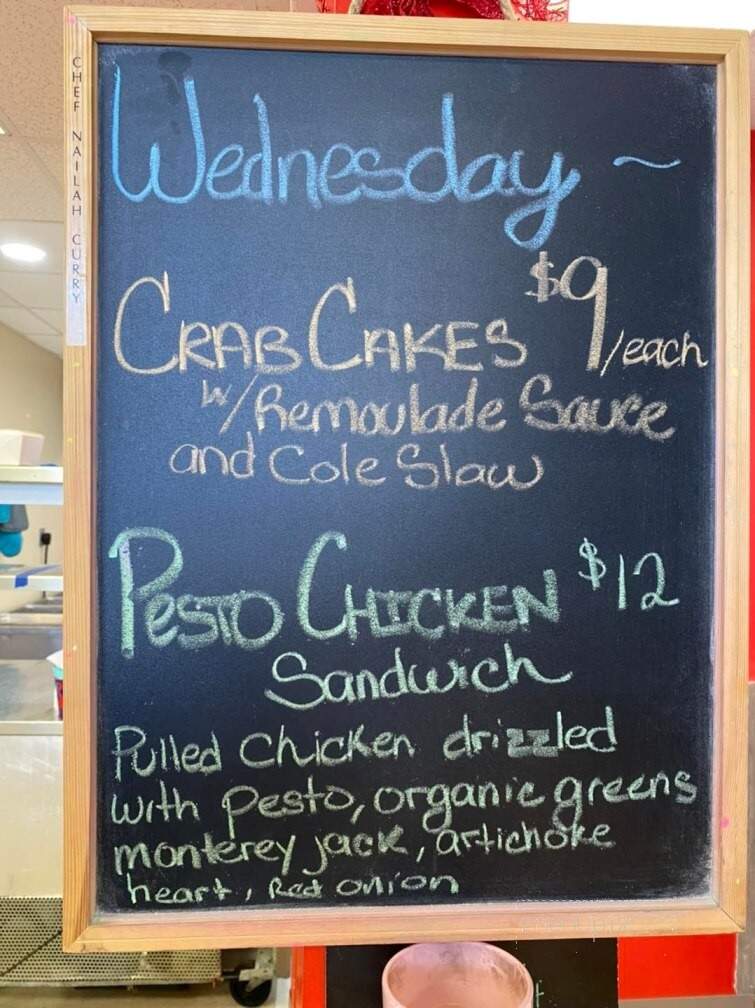 CHEF NAILAH CURRY
Wednesday ~
CRAB CAKES $9/each
w/Remoulade Sauce
and Cole Slaw
PESTO CHICKEN $12
Sandwich
Pulled Chicken drizzled
with pesto, organic greens
monterey jack, artichoke
heart, Red onion